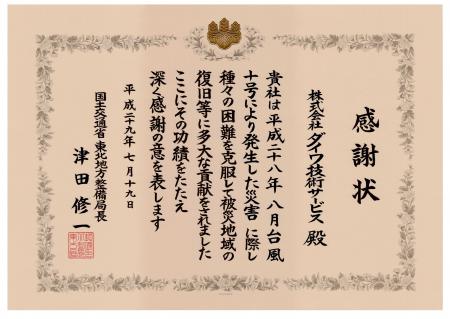 感謝状
株式会社ダイワ技術サービス 殿
貴社は平成二十八年八月台風
十号により発生した災害に際し
種々の困難を克服して被災地域の
復旧等に多大な貢献をされました
ここにその功績をたたえ
深く感謝の意を表します
平成二十九年七月十九日
国土交通省 東北地方整備局長
津田修一